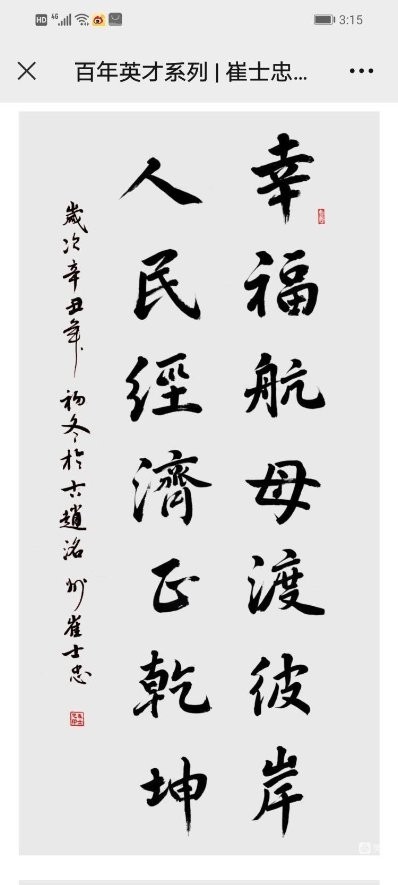 HD 4G 3:15
百年英才系列 | 崔士忠...
幸福航母渡彼岸
人民經濟正乾坤
歲次辛丑年初冬於古趙洺州崔士忠